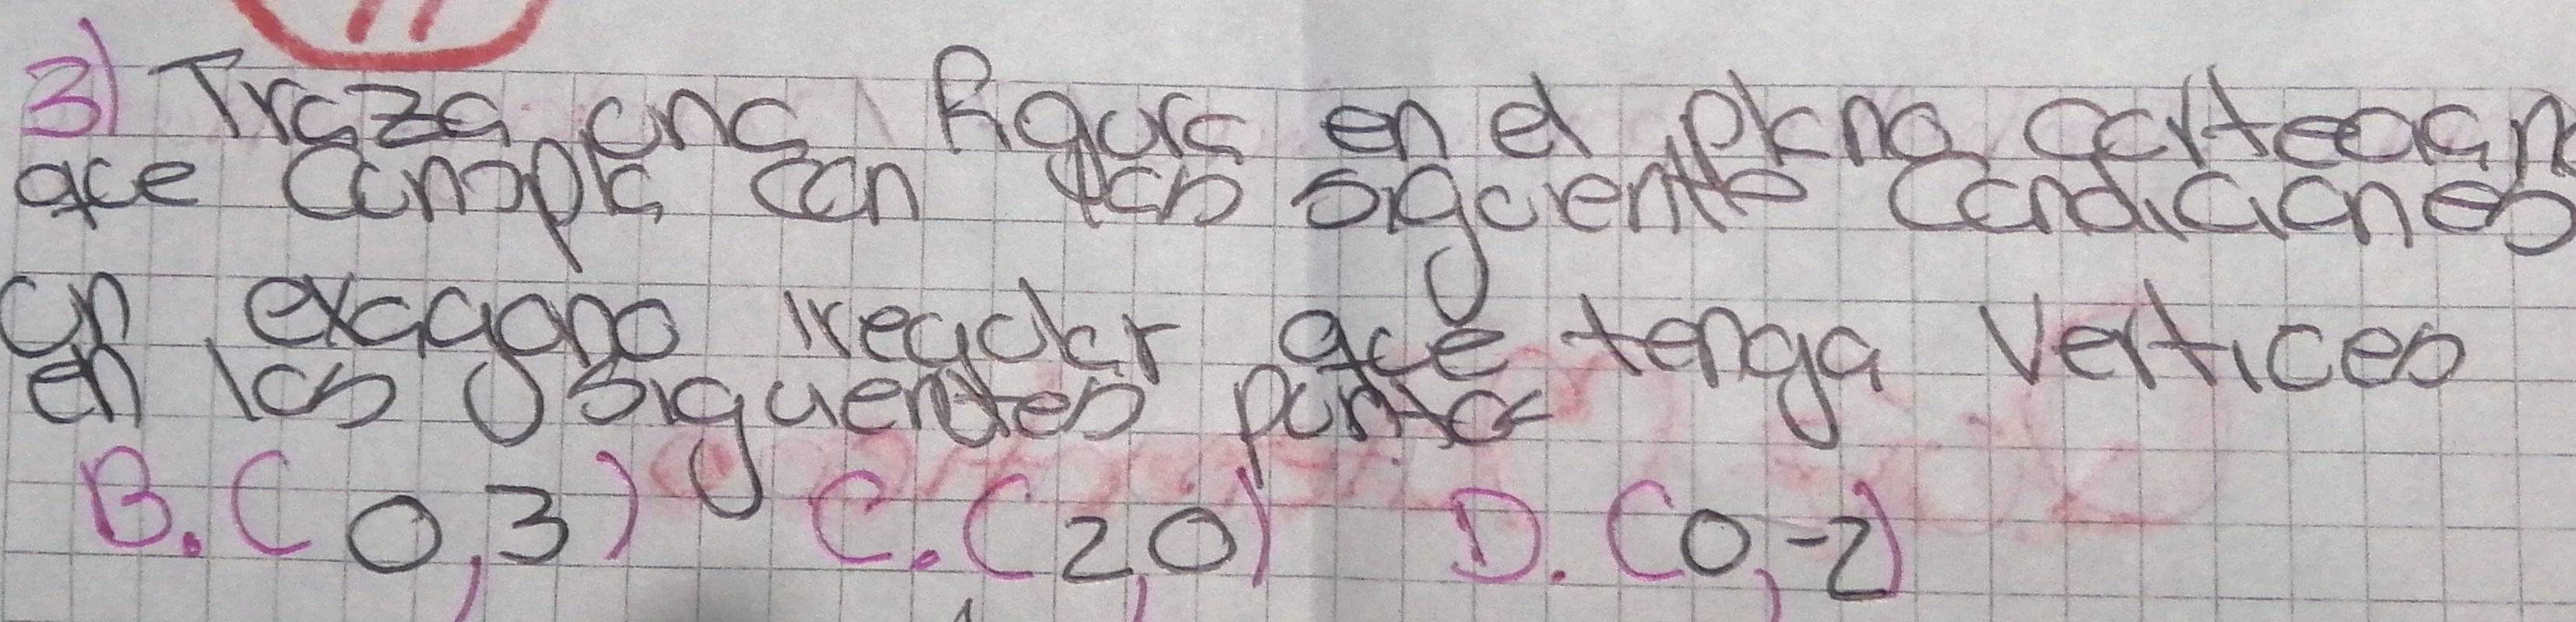 3) Traza una figura en el plano cartecian
que cumpla con las siguiente condiciones
un exagono iregular que tenga vertices
en los siguientes puntos
B. (0,3) C. (2,0) D. (0,-2)